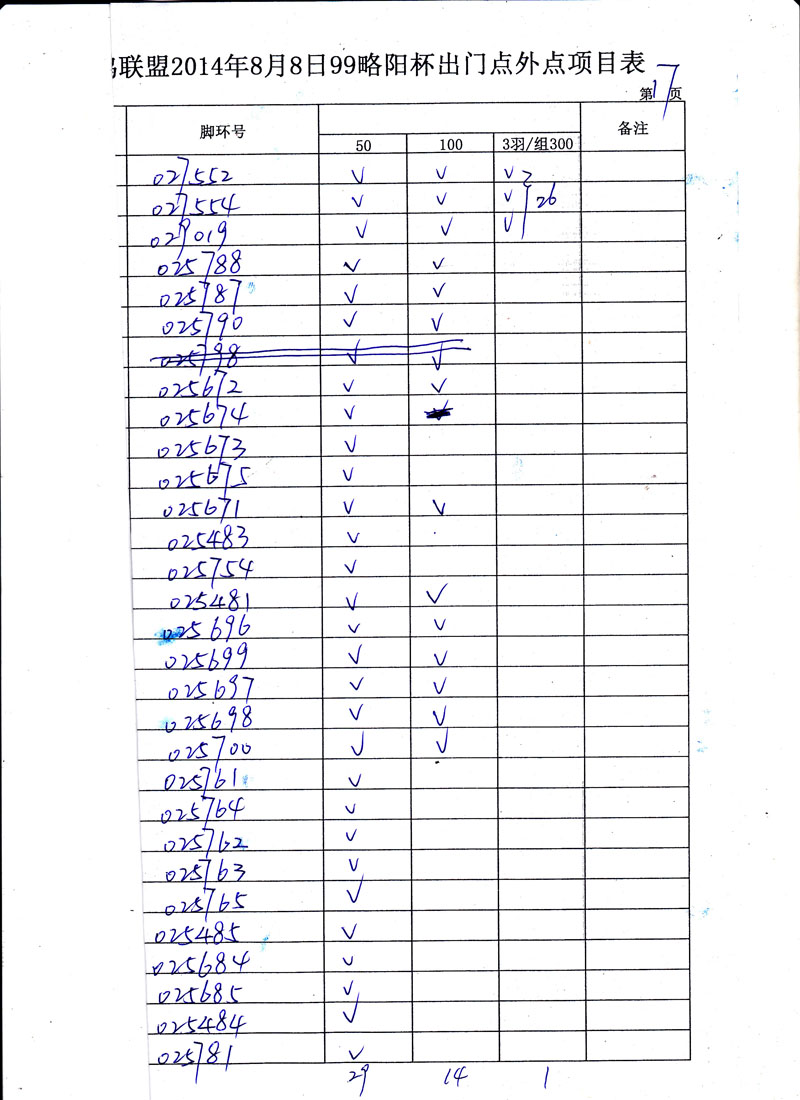 联盟2014年8月8日99略阳杯出门点外点项目表
第17页
脚环号 50 100 3羽/组300 备注
027552 √ √ √
027554 √ √ √ 26
029019 √ √ √
025788 √ √
025787 √ √
025790 √ √
025798 √ √
025672 √ √
025674 √ √
025673 √
025675 √
025671 √ √
025483 √
025754 √
025481 √ √
025696 √ √
025699 √ √
025697 √ √
025698 √ √
025700 √ √
025761 √
025764 √
025762 √
025763 √
025765 √
025485 √
025684 √
025685 √
025484 √
025781 √
29 14 1